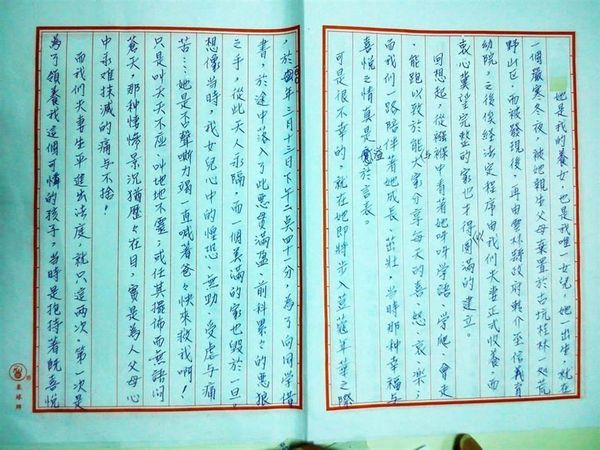 她是我的養女,也是我唯一女兒,她一出生,就在
一個嚴寒冬夜,被她親生父母棄置於古坑桂林一處荒
野山區,而被發現後,再由雲林縣政府轉介至信義育
幼院,之後復經法定程序由我們夫妻正式收養,而
衷心冀望完整的家也才得以圓滿的建立。
回想起,從襁褓中看著她呀呀學語、學爬、會走
、能跑以致於能與大家分享每天的喜、怒、哀、樂;
而我們一路陪伴著她成長、茁壯,當時那種幸福與
喜悅之情真是溢於言表。
可是很不幸的,就在她即將步入荳蔻年華之際
,於年三月十三日下午二點四十一分,為了向同學借
書,於途中落入了此惡貫滿盈、前科累々的惡狼
之手,從此天人永隔,而一個美滿的家也毀於一旦。
想像當時,我女兒心中的惶恐、無助、受虐與痛
苦…她是否聲嘶力竭一直喊著爸々快來救我啊!
只是叫天天不應、叫地地不靈;或任其擺佈而無語問
蒼天,那種悽慘景況猶歷々在目,實是為人父母心
中永難抹滅的痛與不捨!
而我們夫妻生平進出法庭,就只這兩次,第一次是
為了領養我這個可憐的孩子,當時是抱持著既喜悅